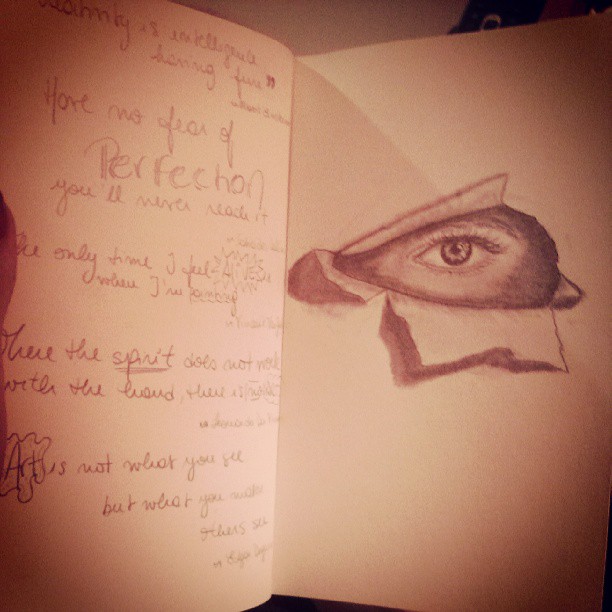 Creativity is intelligence
having fun"
Have no fear of
Perfection
you'll never reach it
The only time I feel ALIVE is
when I'm painting
Where the spirit does not work
with the hand, there is no art
Art is not what you see
but what you make
others see